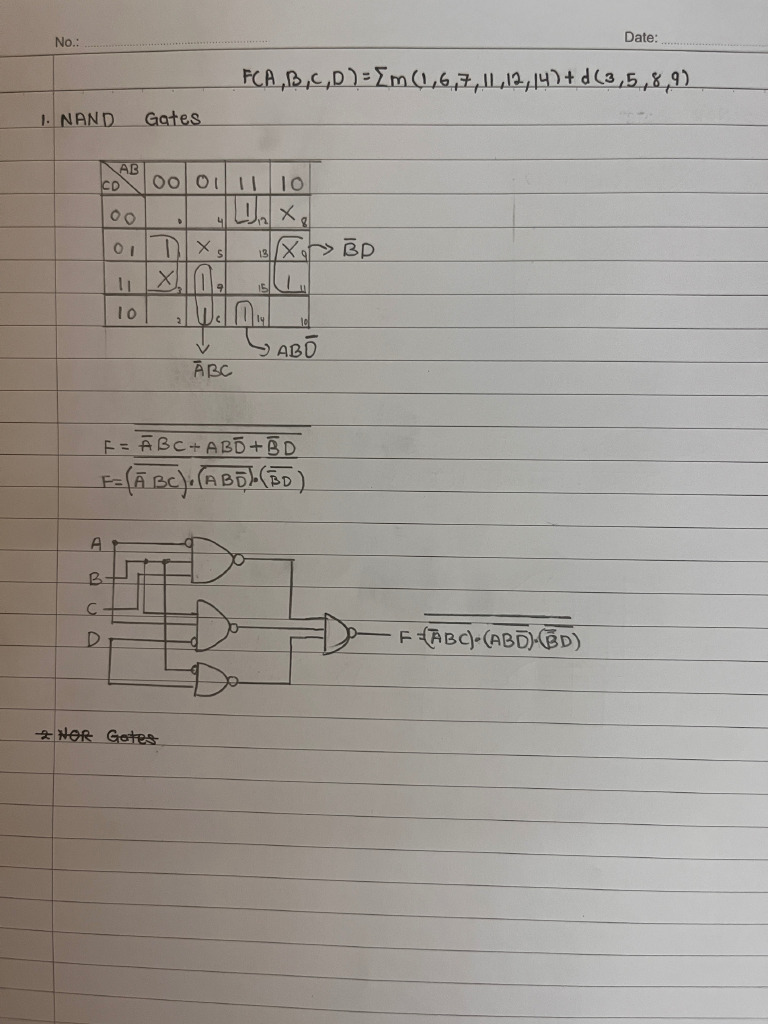 No.: Date:
F(A,B,C,D)=Σm(1,6,7,11,12,14)+d(3,5,8,9)
1. NAND Gates
AB
CD 00 01 11 10
00 0 4 1 12 X 8
01 1 X 5 13 X 9 → B̅D
11 X 3 1 9 15 1 11
10 2 1 6 1 14 10
ABD̅
A̅BC
F = \overline{\overline{A̅BC+ABD̅+B̅D}}
F=\overline{(\overline{A̅BC})·(\overline{ABD̅})·(\overline{B̅D})}
A
B
C
D F=\overline{(\overline{A̅BC})·(\overline{ABD̅})·(\overline{B̅D})}
2 NOR Gates